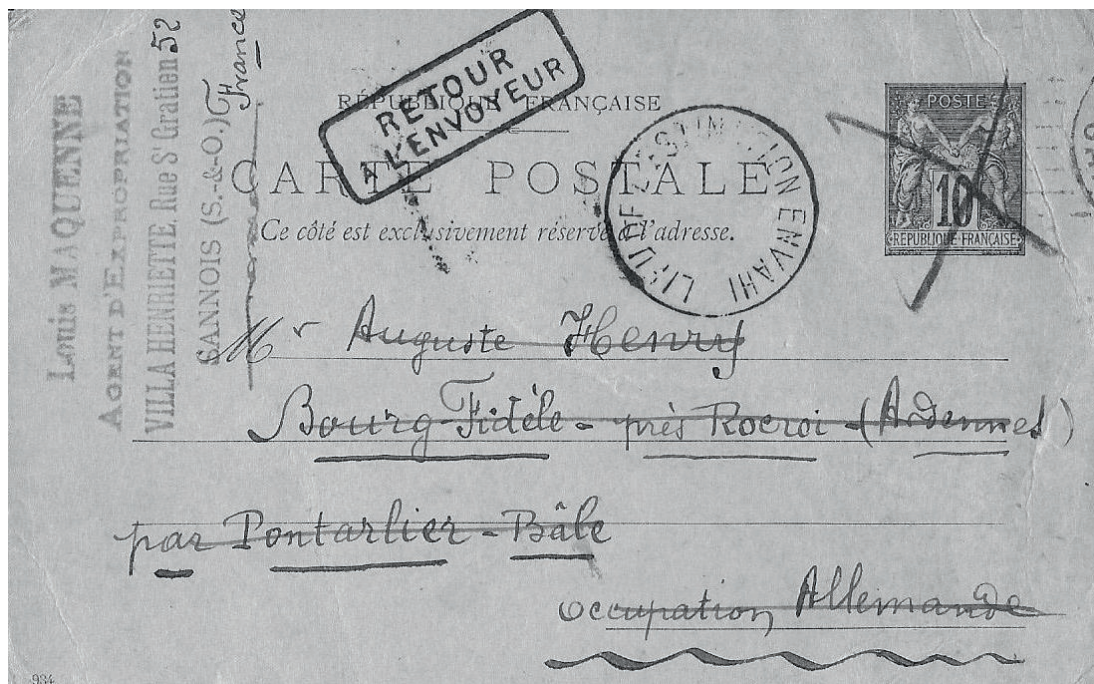 Louis MAQUENNE
AGENT D'EXPROPRIATION
VILLA HENRIETTE, Rue St Gratien 52
SANNOIS (S.-&-O.) France
RETOUR
A L'ENVOYEUR
RÉPUBLIQUE FRANÇAISE
CARTE POSTALE
Ce côté est exclusivement réservé à l'adresse.
LIEU DE DESTINATION ENVAHI
POSTES
10
REPUBLIQUE FRANÇAISE
Mr Auguste Henry
Bourg-Fidèle - près Rocroi - (Ardennes)
par Pontarlier - Bâle
occupation Allemande
934